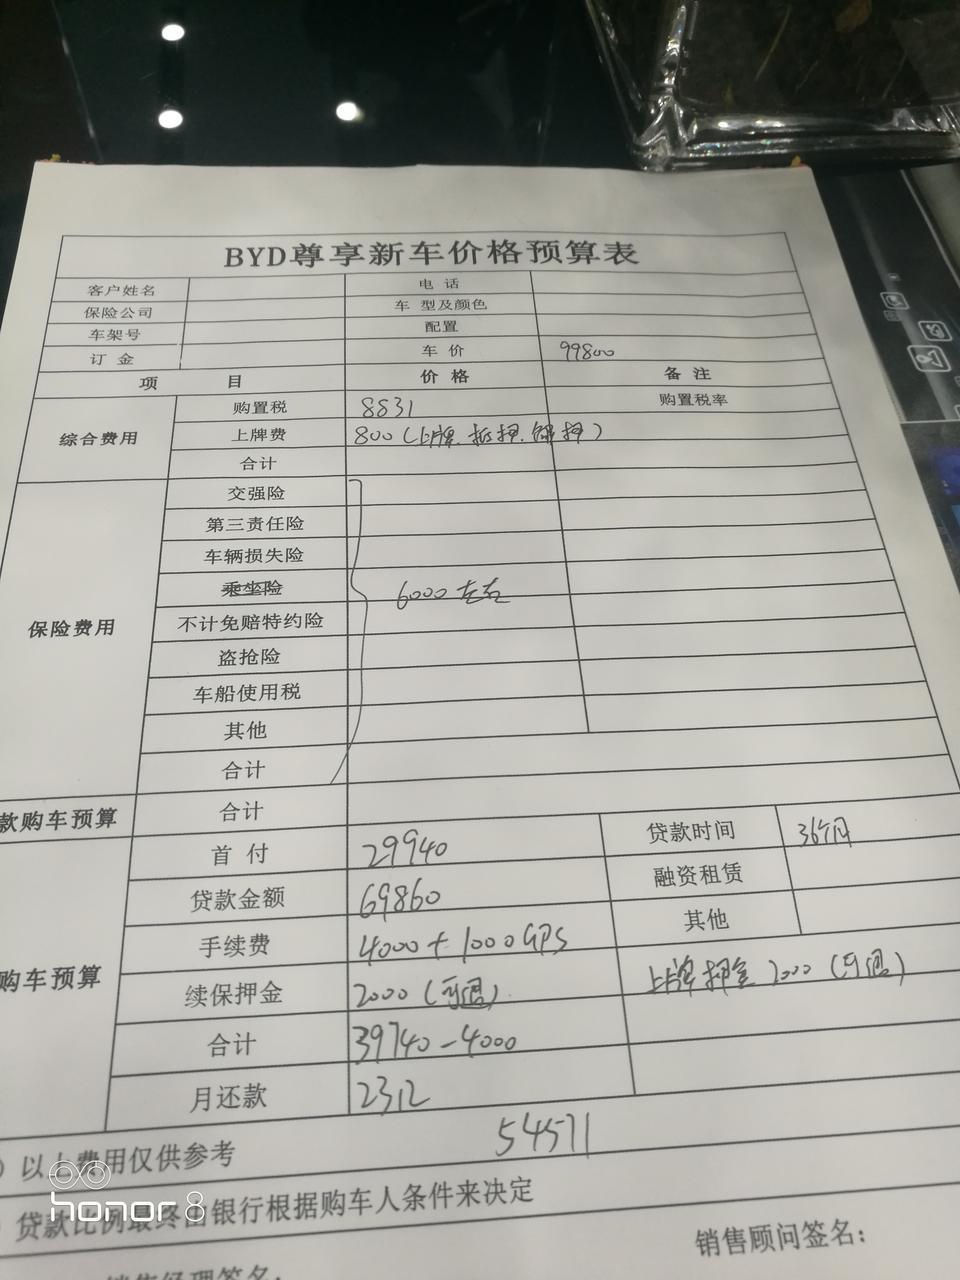 BYD尊享新车价格预算表
客户姓名 电 话
保险公司 车 型及颜色
车架号 配置
订 金 车 价 99800
项 目 价 格 备 注
综合费用 购置税 8831 购置税率
上牌费 800(上牌.抵押.解押)
合计
保险费用 交强险
第三责任险
车辆损失险
乘坐险 6000左右
不计免赔特约险
盗抢险
车船使用税
其他
合计
款购车预算 合计
购车预算 首 付 29940 贷款时间 36个月
贷款金额 69860 融资租赁
手续费 4000+1000GPS 其他
续保押金 2000(可退). 上牌押金2000(可退)
合计 39740-4000
月还款 2312
)以上费用仅供参考 54571
贷款比例最终由银行根据购车人条件来决定
销售经理签名: 销售顾问签名:
honor 8